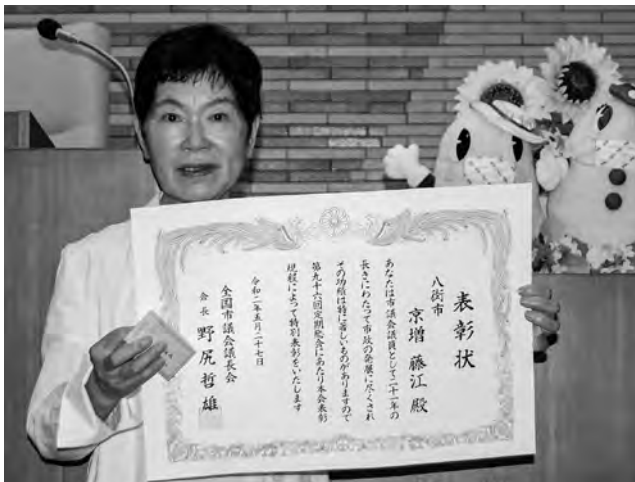 表彰状
八街市
京増藤江殿
あなたは市議会議員として二十一年の
長きにわたって市政の発展に尽くされ
その功績は特に著しいものがありますので
第九十六回定期総会にあたり本会表彰
規程によって特別表彰をいたします
令和二年五月二十七日
全国市議会議長会
会長 野尻哲雄